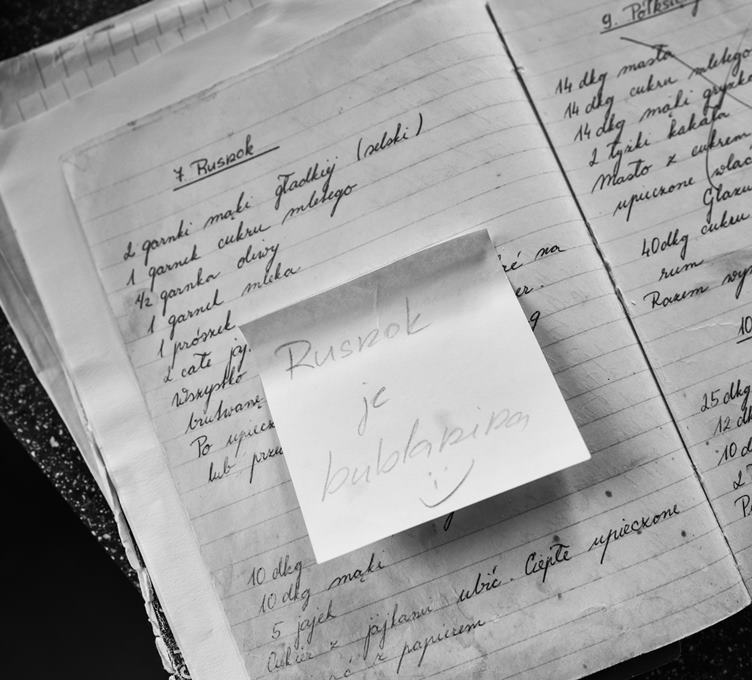 7. Rusnok
2 garnki mąki gładkiej (selski)
1 garnek cukru mletego
1/2 garnka oliwy
1 garnek mleka
1 prószek
2 całe
Wszystko
Po
lub
na
Rusnok
je
bublanina
:)
10 dkg
10 dkg mąki
5 jajek
Cukier z jajkami ubić. Ciepłe upieczone
z papierem
9.
14 dkg masła
14 dkg cukru mletego
14 dkg mąki
2 łyżki kakała
Masło z cukrem
upieczone
40 dkg cukru
rum
Razem
10
25 dkg
12
10
2